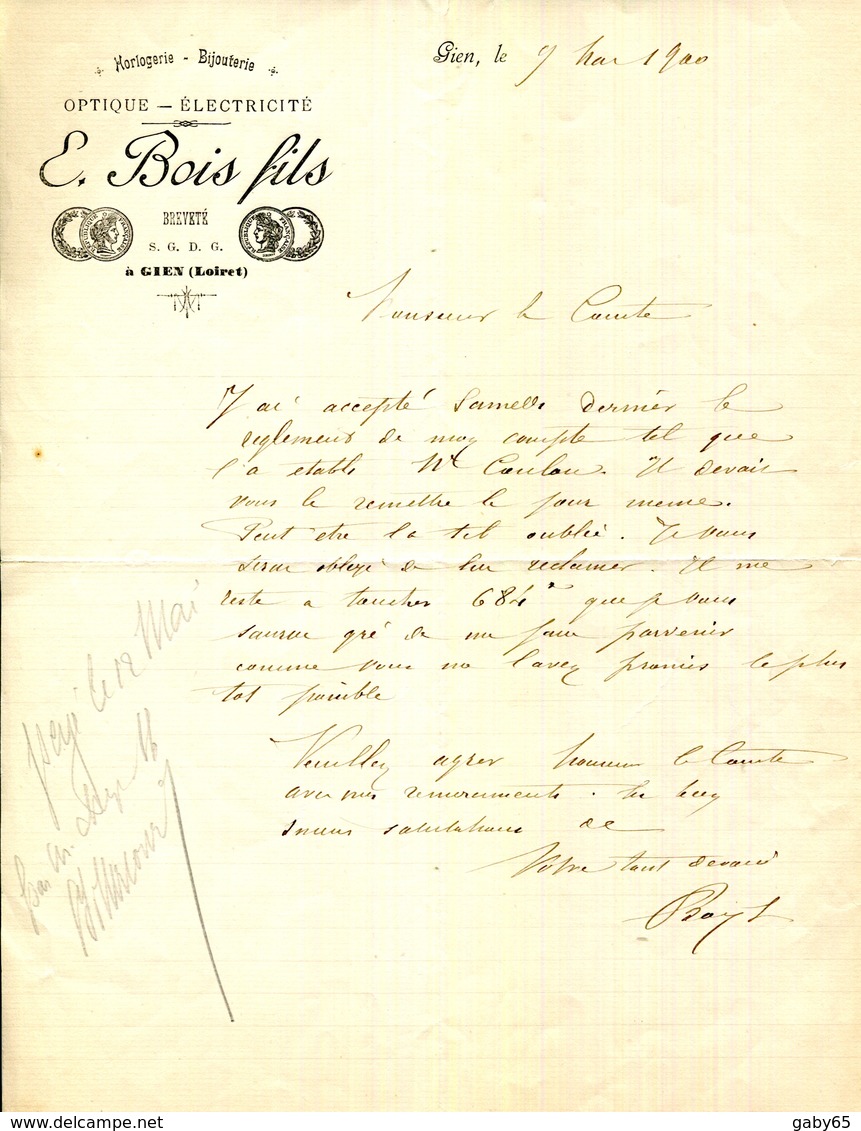 Horlogerie - Bijouterie
OPTIQUE — ÉLECTRICITÉ
E. Bois fils
BREVETÉ
S. G. D. G.
à GIEN (Loiret)
Gien, le 9 Mai 1900
Monsieur le Comte
J'ai accepté Samedi dernier le
reglement de mon compte tel que
l'a etabli Mr Coulon. Il devait
vous le remettre le jour meme.
Peut etre la t'el oublié. Je vous
serai obligé de lui reclamer. Il me
reste a toucher 684 f que je vous
saurai gré de me faire parvenir
comme vous me l'avez promis le plus
tot possible
Veuillez agreer Monsieur le Comte
avec mes remerciements les bien
sinceres salutations de
Votre tout devoué
payé le 12 Mai
par
gaby65